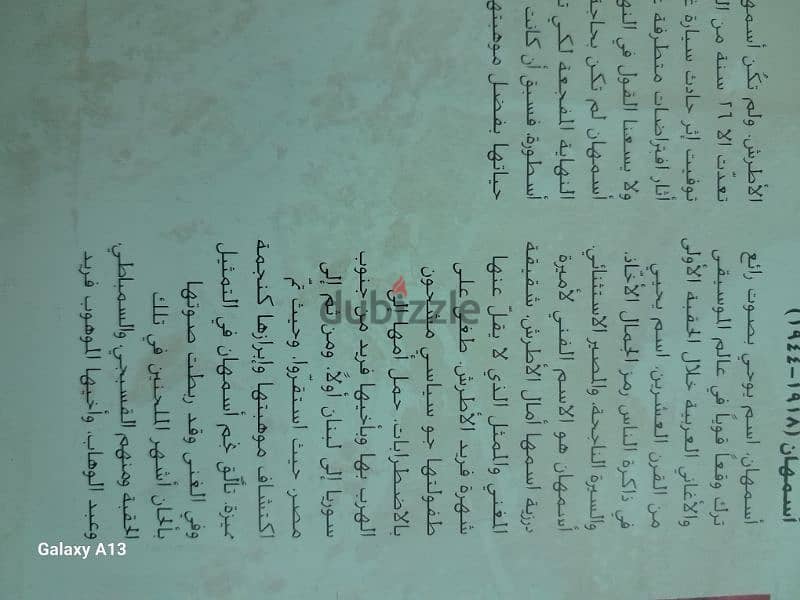 أسمهان (١٩١٨-١٩٤٤)
أسمهان، اسم يوحي بصوت رائع
ترك وقعاً قوياً في عالم الموسيقى
والأغاني العربية خلال الحقبة الأولى
من القرن العشرين. اسم يحيي
في ذاكرة الناس رمز الجمال الأخّاذ،
والسيرة الناجحة والمصير الاستثنائي.
أسمهان هو الاسم الفني لأميرة
درزية اسمها أمال الأطرش، شقيقة
المغني والممثل الذي لا يقلّ عنها
شهرة فريد الأطرش. طغى على
طفولتها جو سياسي مشحون
بالاضطرابات، حمل أمها إلى
الهرب بها وبأخيها فريد من جنوب
سوريا إلى لبنان أولاً، ومن ثم إلى
مصر حيث استقرّوا، وحيث تمّ
اكتشاف موهبتها وإبرازها كنجمة
ميزة. تألّق نجم أسمهان في التمثيل
وفي الغنى وقد ربطت صوتها
بألحان أشهر الملحنين في تلك
الحقبة ومنهم القصبجي والسمباطي
وعبد الوهاب، وأخيها الموهوب فريد
الأطرش. ولم تكن أسمه
تعدّت الا ٢٦ سنة من ال
توفيت إثر حادث سيارة
أثار افتراضات متطرفة
ولا يسعنا القول في النه
أسمهان لم تكن بحاجة
النهاية المفجعة لكي
أسطورة. فسبق أن كانت
حياتها بفضل موهبتها
dubizzle
Galaxy A13